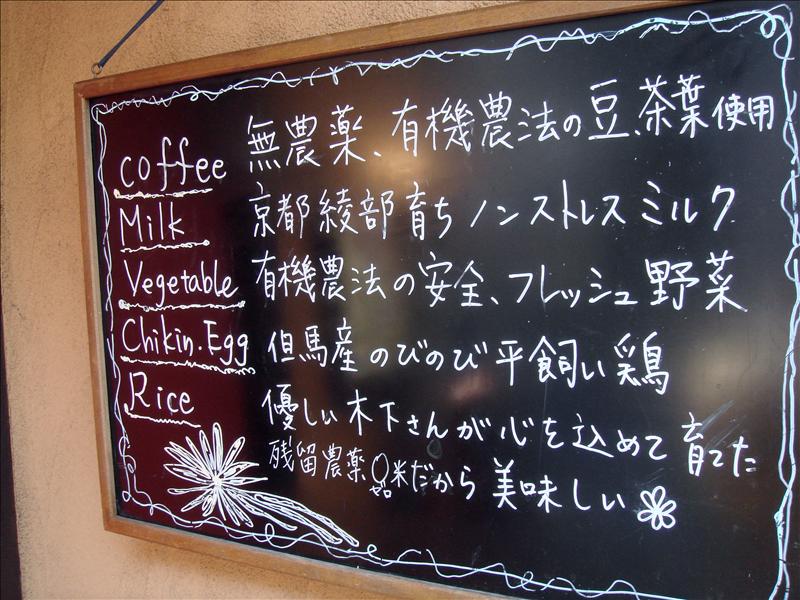 coffee 無農薬、有機農法の豆、茶葉使用
Milk 京都綾部育ち ノンストレスミルク
Vegetable 有機農法の安全、フレッシュ野菜
Chikin.Egg 但馬産のびのび平飼い鶏
Rice 優しい木下さんが心を込めて育てた
残留農薬0米だから美味しい